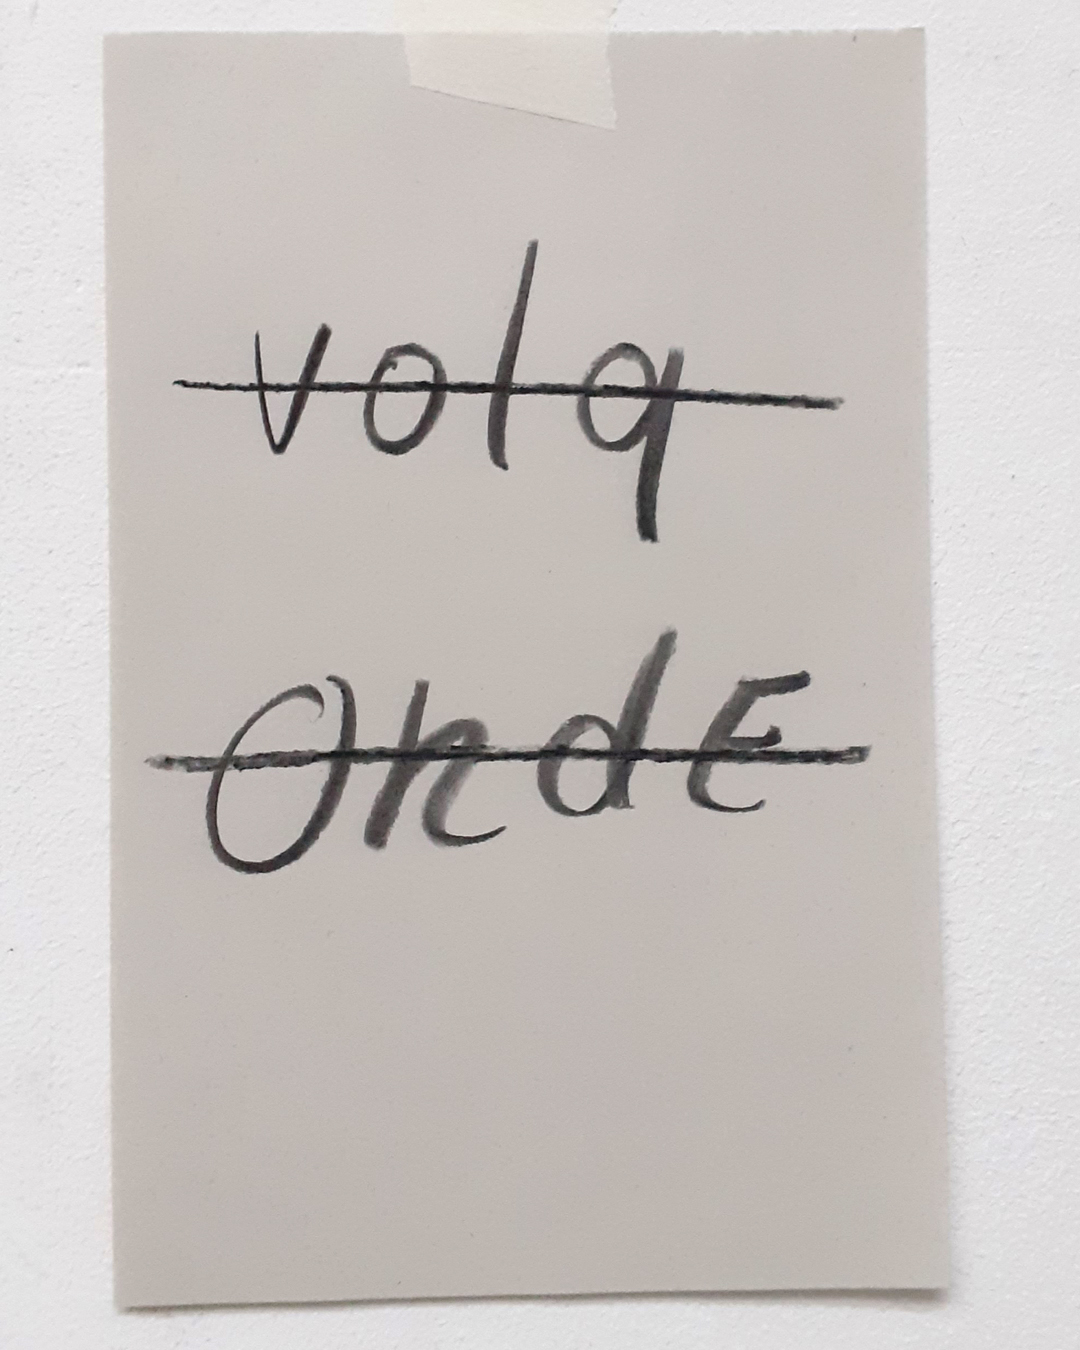 volq
OndE